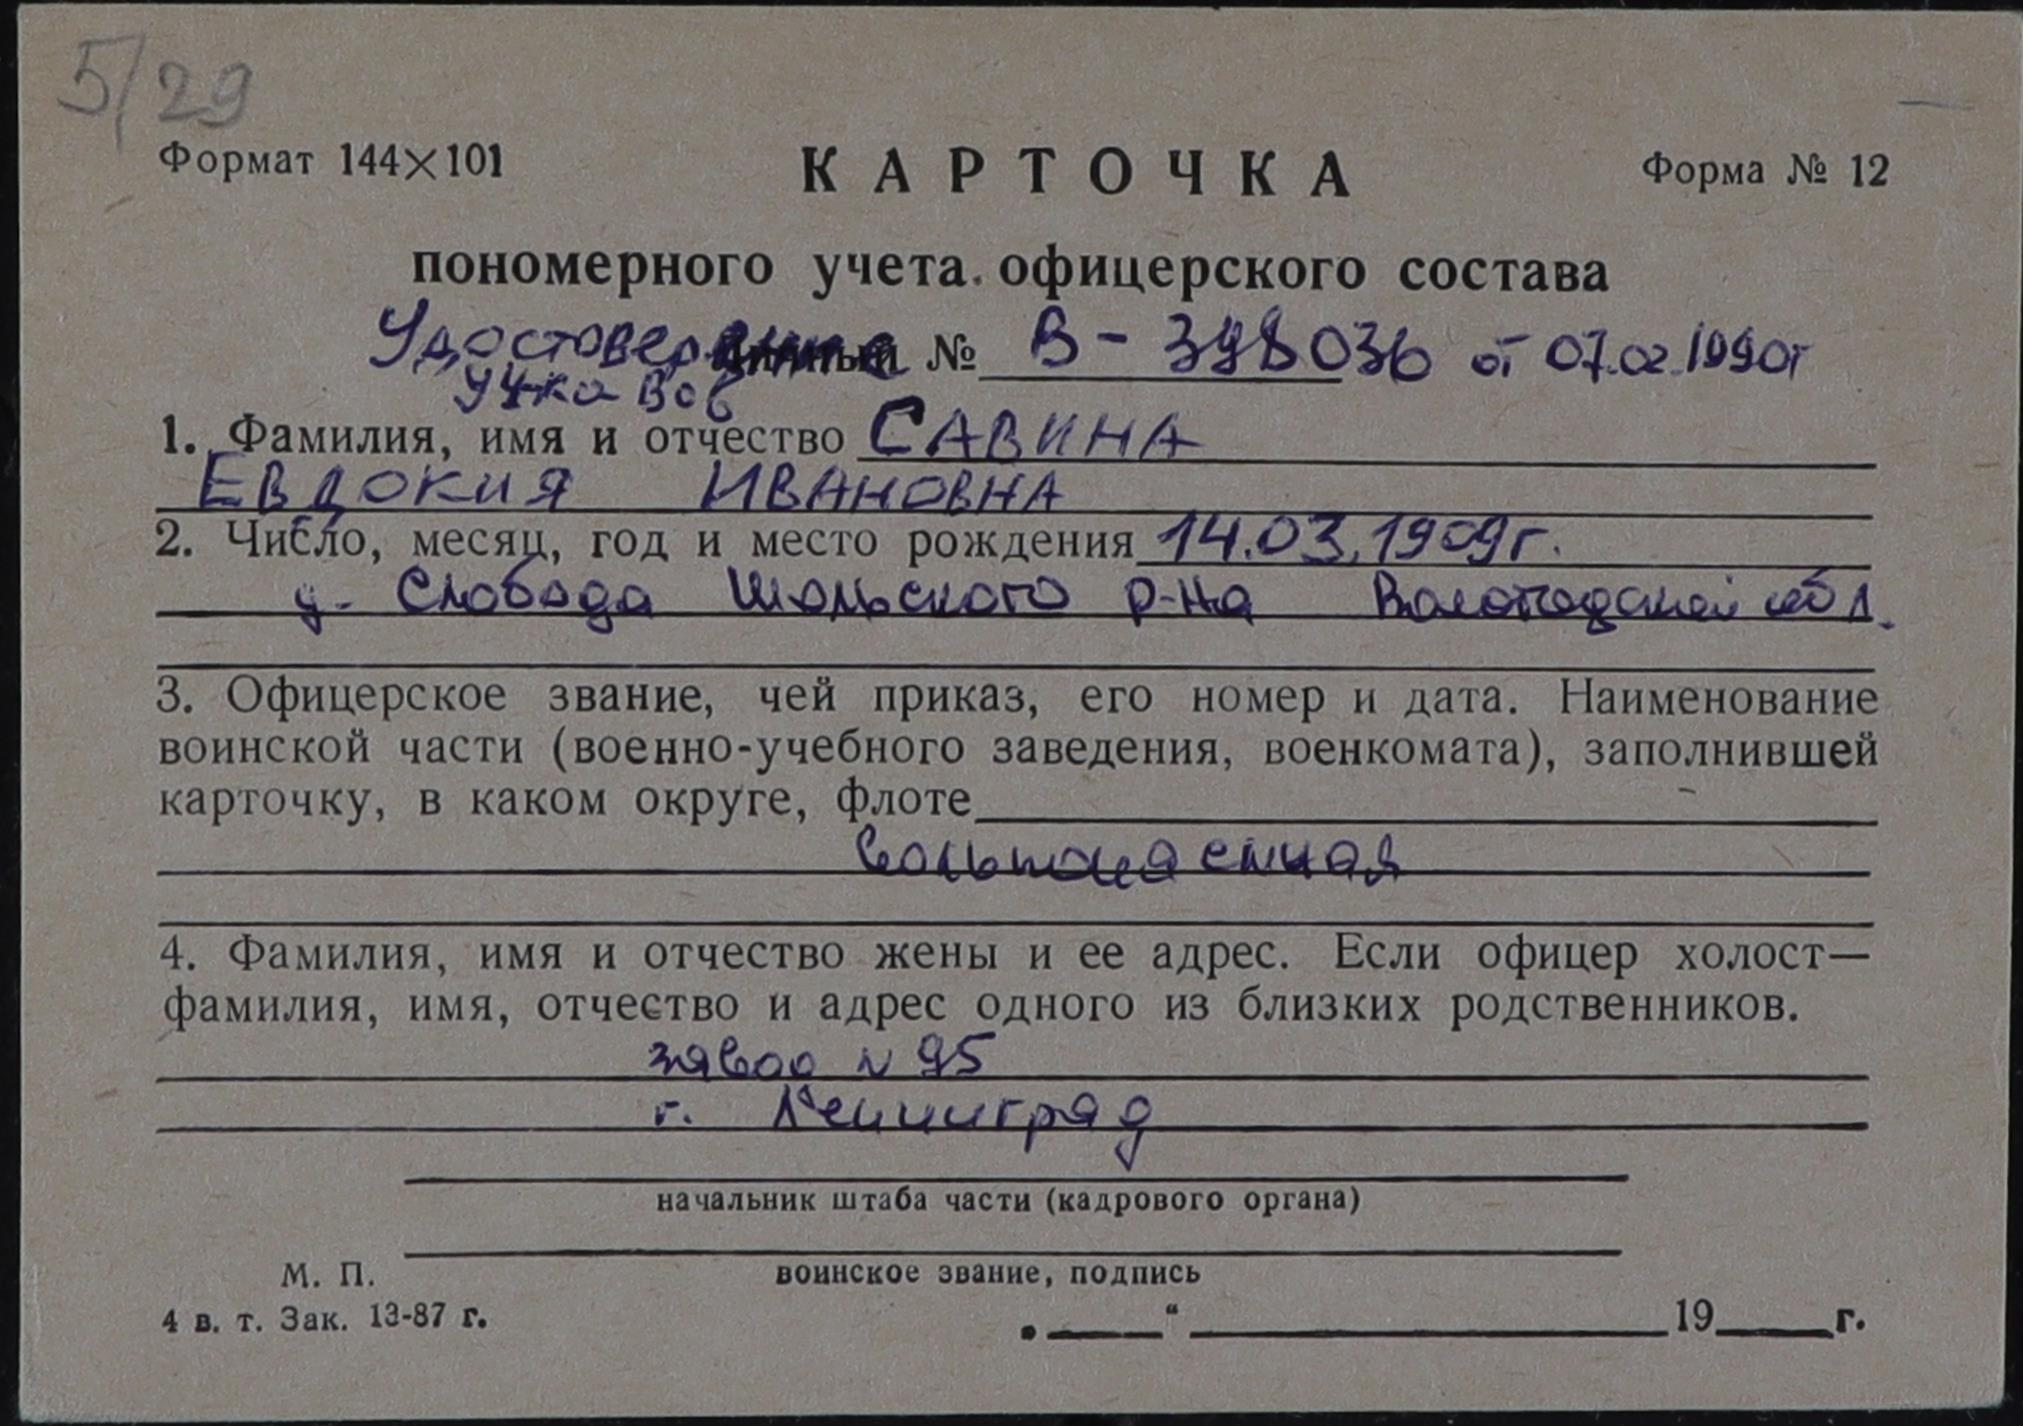 5/29
Формат 144×101 КАРТОЧКА Форма № 12
пономерного учета офицерского состава
Удостоверение № В - 398036 от 07.02.1990г
уч-ка ВОВ
1. Фамилия, имя и отчество САВИНА
ЕВДОКИЯ ИВАНОВНА
2. Число, месяц, год и место рождения 14.03.1909г.
д. Слобода Шольского р-на Вологодской обл.
3. Офицерское звание, чей приказ, его номер и дата. Наименование
воинской части (военно-учебного заведения, военкомата), заполнившей
карточку, в каком округе, флоте
вольнонаемная
4. Фамилия, имя и отчество жены и ее адрес. Если офицер холост—
фамилия, имя, отчество и адрес одного из близких родственников.
завод N 95
г. Ленинград
начальник штаба части (кадрового органа)
М. П. воинское звание, подпись
4 в. т. Зак. 13-87 г.
„ “ 19 г.